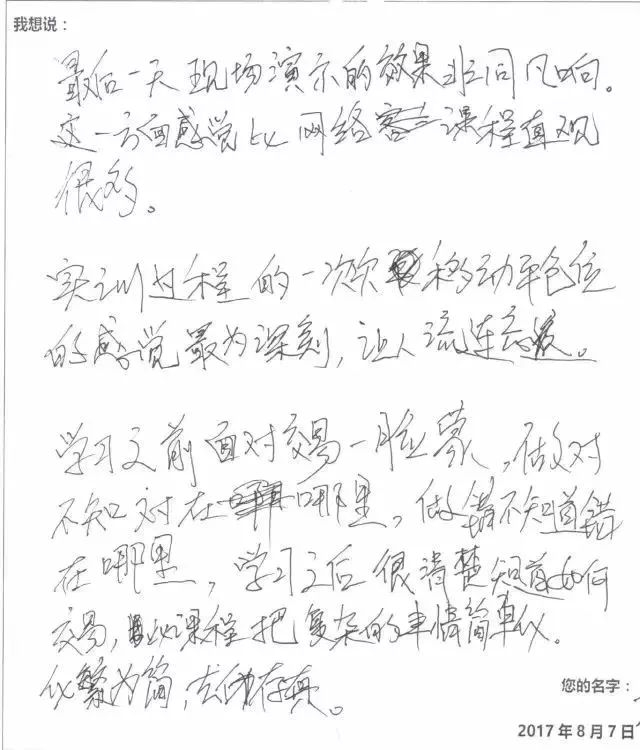 我想说：
最后一天现场演示的效果非同凡响。
这一方面感觉比网络课程直观
很多。
实训过程的一次次移动平仓位
的感觉最为深刻，让人流连忘返。
学习之前面对交易一脸蒙，做对
不知对在哪里，做错不知道错
在哪里，学习之后很清楚知道如何
交易，课程把复杂的事情简单化。
化繁为简，去伪存真。
您的名字：
2017年8月7日